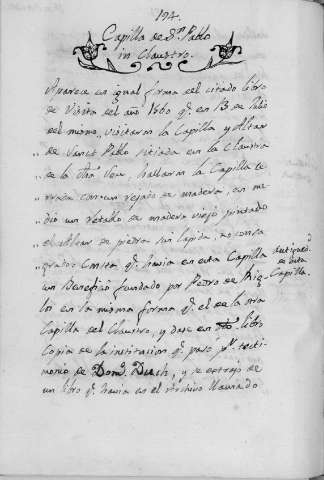 194.
Capilla de Sn. Pablo
in Claustro.
Aparece en igual forma del citado libro
de Visita del año 1560 qe. en 13 de Julio
del mismo, visitaron la Capilla y Altar
„ de Sanct Pablo sitiada en la Claustra
„ de la dha Seu, hallaron la Capilla ce
„ rrada con un rejado de madera, en me
„ dio un retablo de madera viejo pintado
„ el Altar de piedra sin lapida, no consa
„ grado: Consta qe. havia en esta Capilla
un Beneficio fundado por Pedro de
los en la misma forma qe. el de la otra
Capilla del Claustro, y dase en dho. libro
Copia de la institucion qe. pasó pr. testi
monio de Domo. , y se extrajo de
un libro qe. havia en el Archivo llamado
Antigued.
de esta
Capilla.